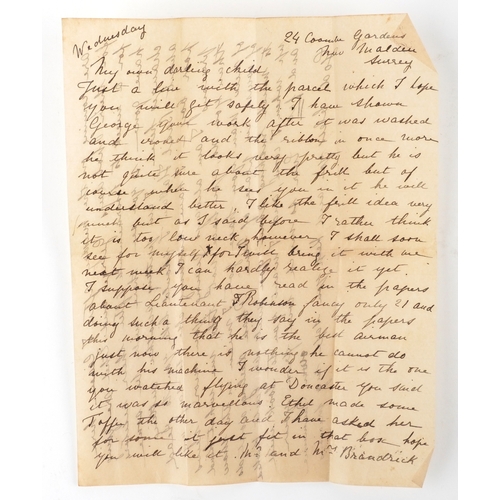 Wednesday
24 Coombe Gardens
New Malden
Surrey
My own darling child
Just a line with the parcel which I hope
you will get safely I have shown
George your work after it was washed
and ironed and the ribbon in once more
he think it looks very pretty but he is
not quite sure about the frill but of
course when he sees you in it he will
understand better, I like the frill idea very
much but as I said before I rather think
it is too low neck however I shall soon
see for myself for I will bring it with me
next week I can hardly realize it yet.
I suppose you have read in the papers
about Lieutenant Robinson fancy only 21 and
doing such a thing they say in the papers
this morning that he is the best airman
just now there is nothing he cannot do
with his machine I wonder if it is the one
you watched flying at Doncaster you said
it was so marvellous Ethel made some
Toffee the other day and I have asked her
for some it just fit in that box hope
you will like it. Mr and Mrs Brandrick